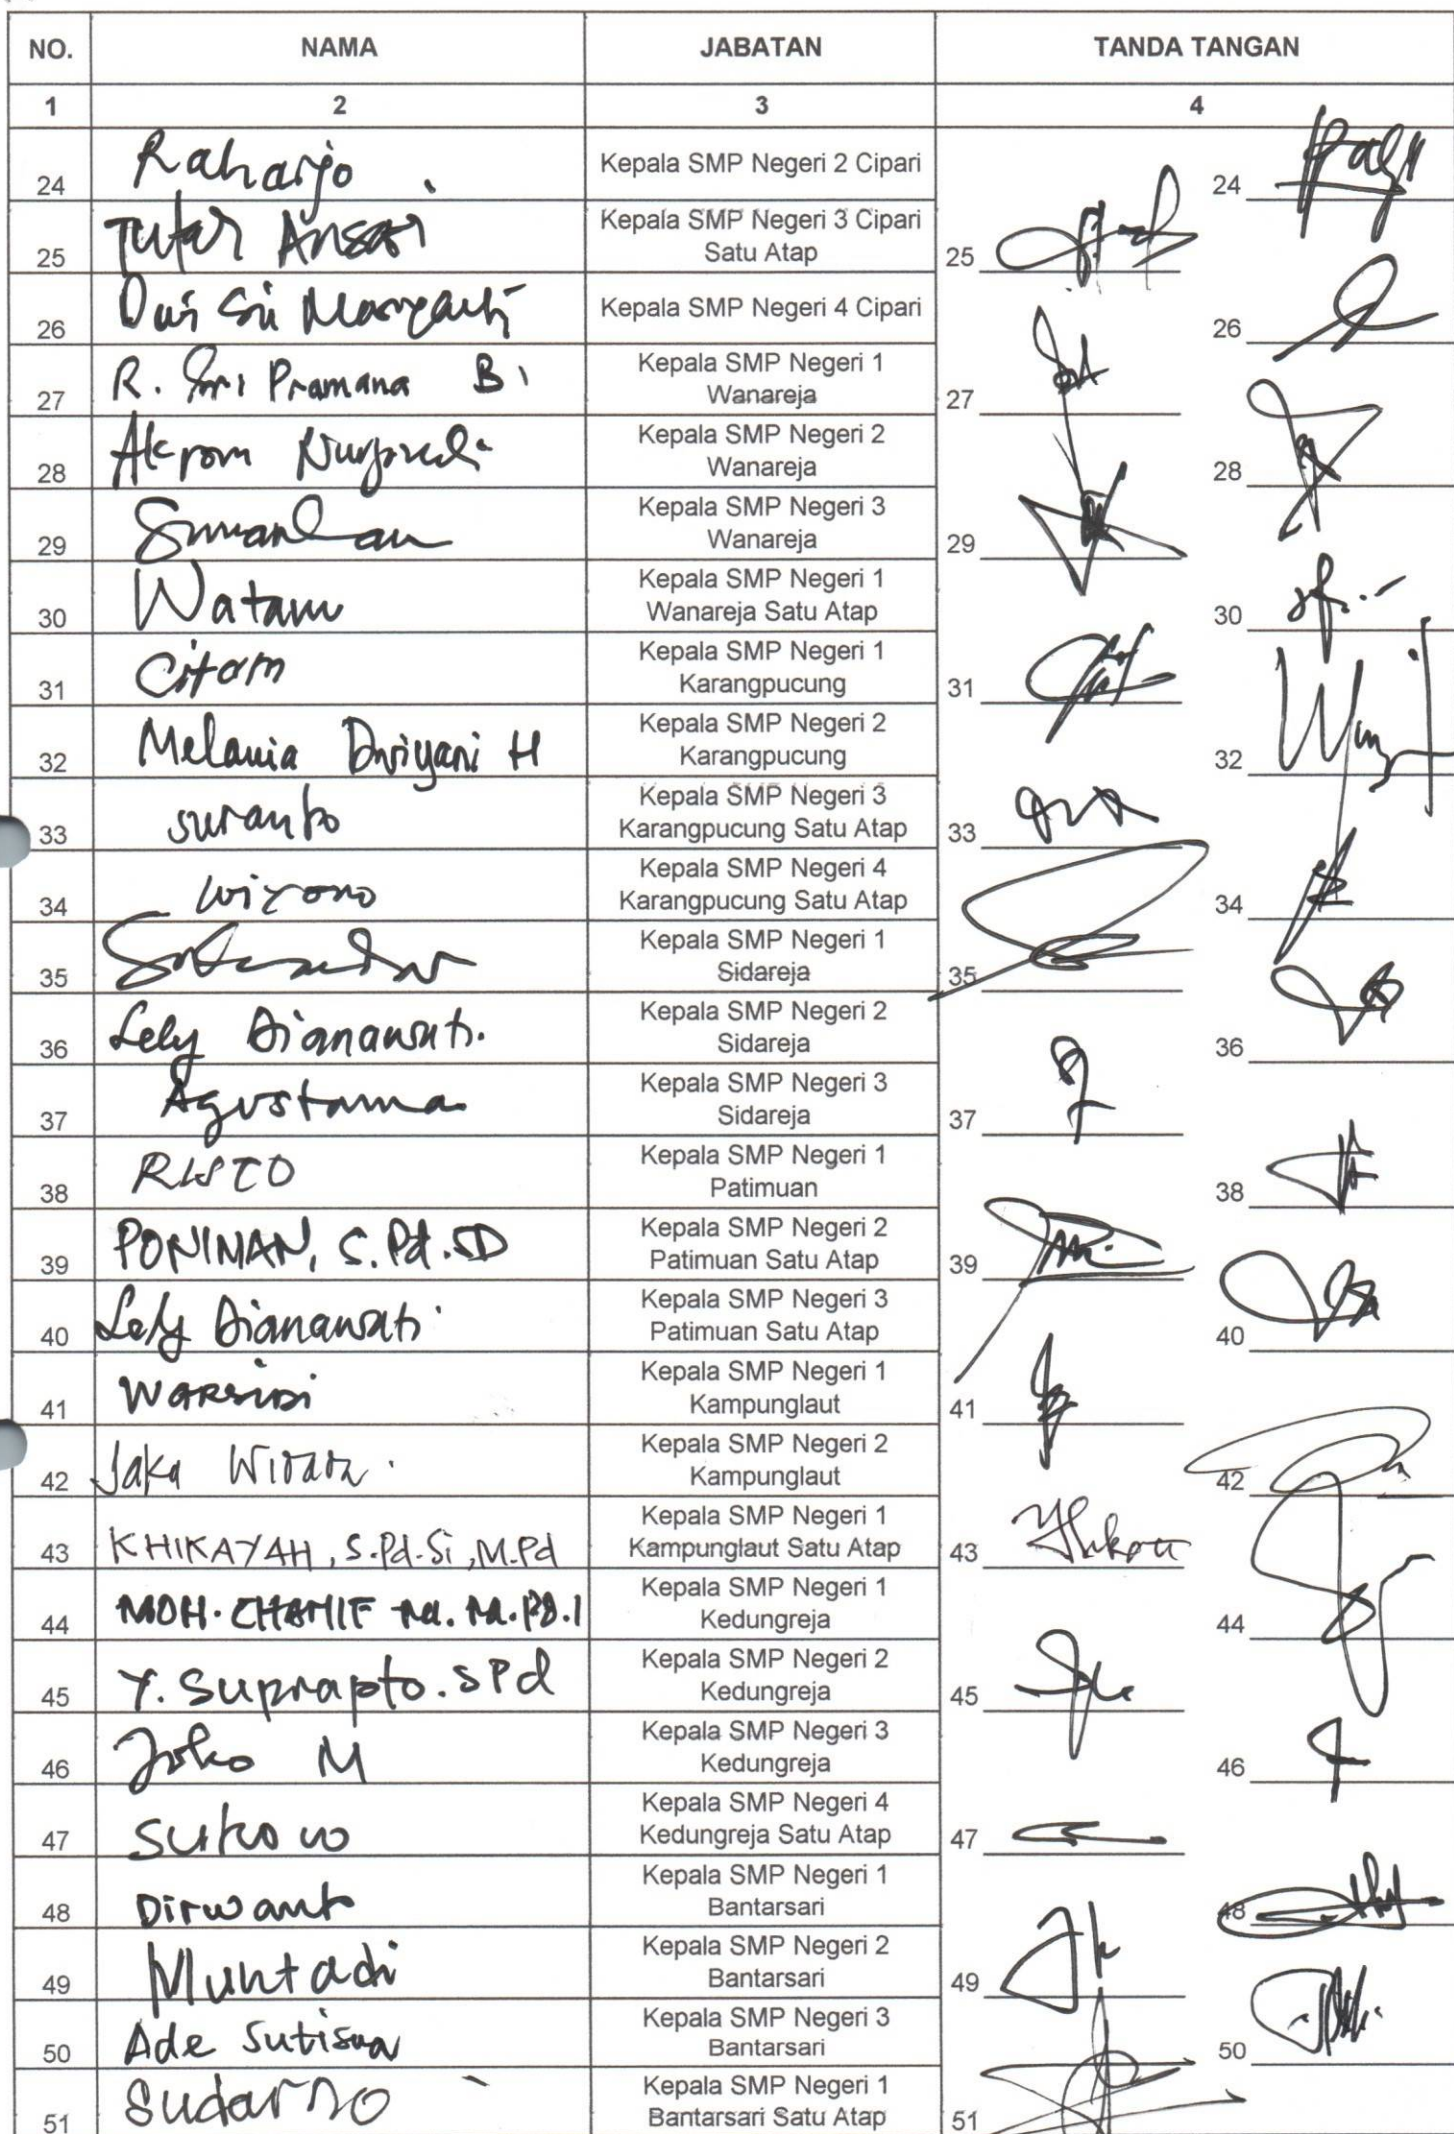 NO. NAMA JABATAN TANDA TANGAN
1 2 3 4
24 Raharjo Kepala SMP Negeri 2 Cipari 24
25 Tufar Ansori Kepala SMP Negeri 3 Cipari
Satu Atap 25
26 Dwi Sri Maryanti Kepala SMP Negeri 4 Cipari 26
27 R. Sri Pramana B. Kepala SMP Negeri 1
Wanareja 27
28 Akrom Kepala SMP Negeri 2
Wanareja 28
29 Kepala SMP Negeri 3
Wanareja 29
30 Watam Kepala SMP Negeri 1
Wanareja Satu Atap 30
31 Citam Kepala SMP Negeri 1
Karangpucung 31
32 Melania Dwiyani H Kepala SMP Negeri 2
Karangpucung 32
33 suranto Kepala SMP Negeri 3
Karangpucung Satu Atap 33
34 wiyono Kepala SMP Negeri 4
Karangpucung Satu Atap 34
35 Kepala SMP Negeri 1
Sidareja 35
36 Lely Dianawati. Kepala SMP Negeri 2
Sidareja 36
37 Agustama Kepala SMP Negeri 3
Sidareja 37
38 RISTO Kepala SMP Negeri 1
Patimuan 38
39 PONIMAN, S.Pd.SD Kepala SMP Negeri 2
Patimuan Satu Atap 39
40 Lely Dianawati Kepala SMP Negeri 3
Patimuan Satu Atap 40
41 WARSIDI Kepala SMP Negeri 1
Kampunglaut 41
42 Jaka Kepala SMP Negeri 2
Kampunglaut 42
43 KHIKAYAH, S.Pd.Si, M.Pd Kepala SMP Negeri 1
Kampunglaut Satu Atap 43
44 MOH. CHAMIF M. M.Pd.I Kepala SMP Negeri 1
Kedungreja 44
45 Y. Suprapto. SPd Kepala SMP Negeri 2
Kedungreja 45
46 Joko M Kepala SMP Negeri 3
Kedungreja 46
47 Sukowo Kepala SMP Negeri 4
Kedungreja Satu Atap 47
48 Dirwanto Kepala SMP Negeri 1
Bantarsari 48
49 Muntadi Kepala SMP Negeri 2
Bantarsari 49
50 Ade Sutisna Kepala SMP Negeri 3
Bantarsari 50
51 Sudarno Kepala SMP Negeri 1
Bantarsari Satu Atap 51